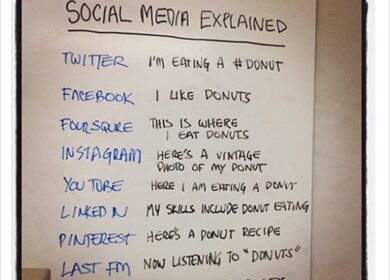 SOCIAL MEDIA EXPLAINED
TWITTER I'M EATING A #DONUT
FACEBOOK I LIKE DONUTS
FOURSQURE THIS IS WHERE
I EAT DONUTS
INSTAGRAM HERE'S A VINTAGE
PHOTO OF MY DONUT
YOUTUBE HERE I AM EATING A DONUT
LINKEDIN MY SKILLS INCLUDE DONUT EATING
PINTEREST HERE'S A DONUT RECIPE
LAST FM NOW LISTENING TO "DONUTS"